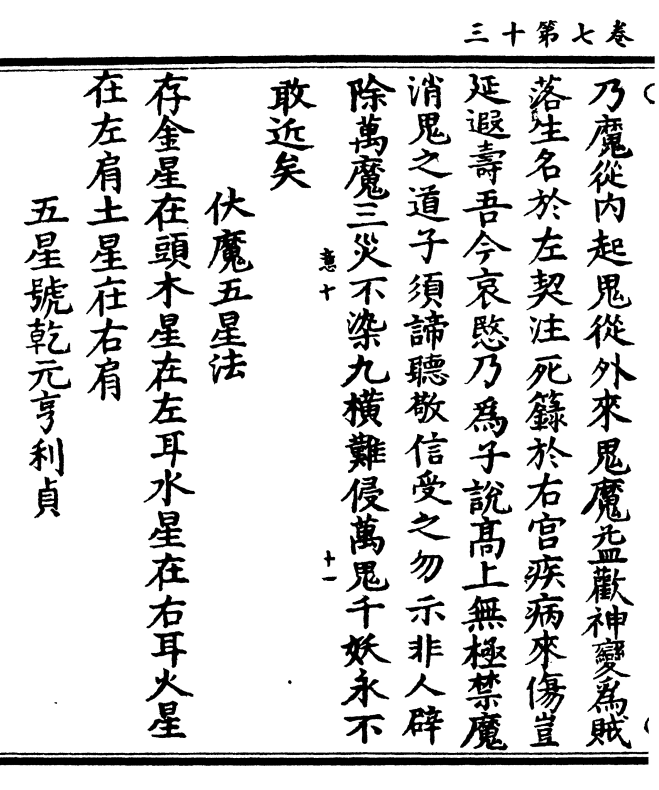 三十第七卷
乃魔從內起鬼從外來鬼魔益歡神變爲賊
落生名於左契注死籙於右宮疾病來傷豈
延遐壽吾今哀愍乃爲子說高上無極禁魔
消鬼之道子須諦聽敬信受之勿示非人辟
除萬魔三災不染九橫難侵萬鬼千妖永不
意十
十一
敢近矣
伏魔五星法
存金星在頭木星在左耳水星在右耳火星
在左肩土星在右肩
五星號乾元亨利貞